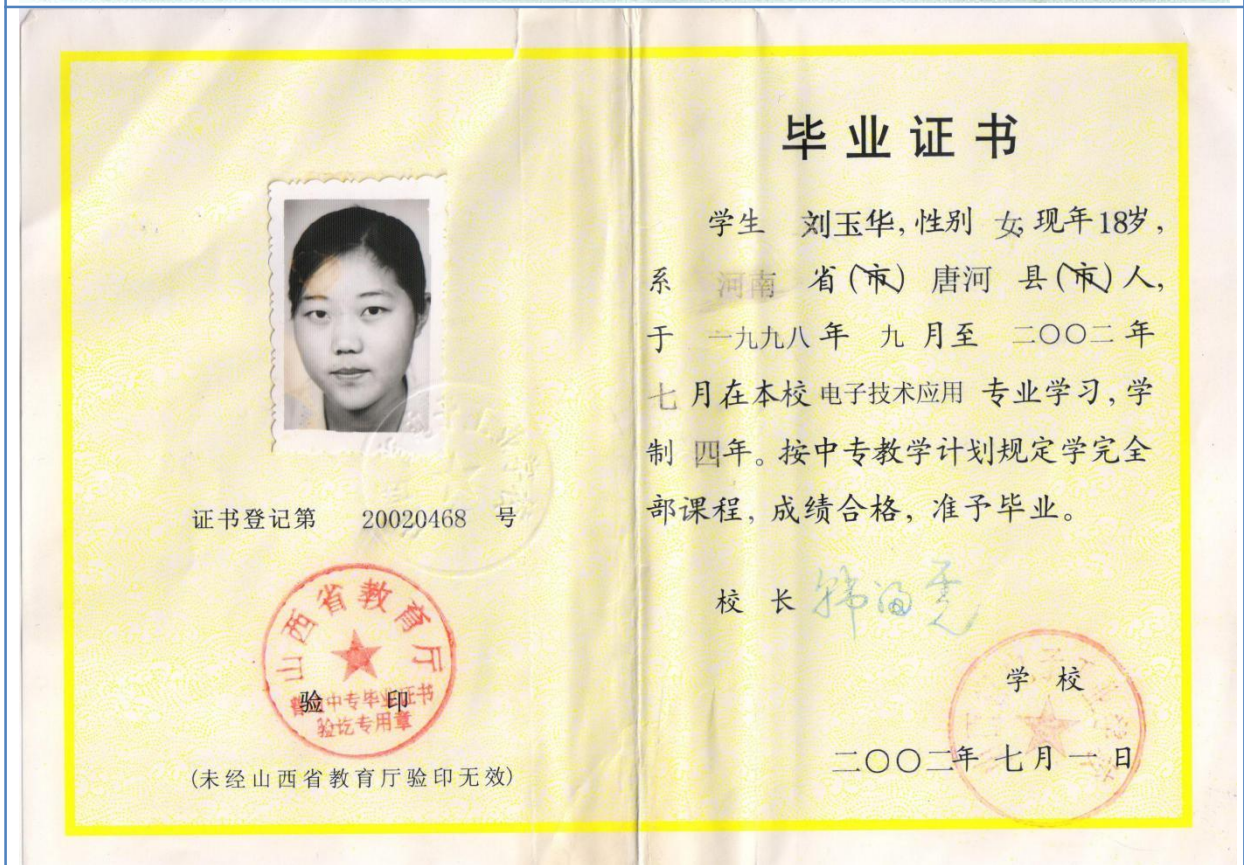 证书登记第 20020468 号
山西省教育厅
普通中专毕业证书
验讫专用章
验 印
(未经山西省教育厅验印无效)
毕业证书
学生 刘玉华, 性别 女, 现年18岁,
系 河南 省(市) 唐河 县(市)人,
于 一九九八年 九 月至 二〇〇二年
七 月在本校 电子技术应用 专业学习, 学
制 四年。按中专教学计划规定学完全
部课程, 成绩合格, 准予毕业。
校 长
学 校
二〇〇二年 七月 一 日